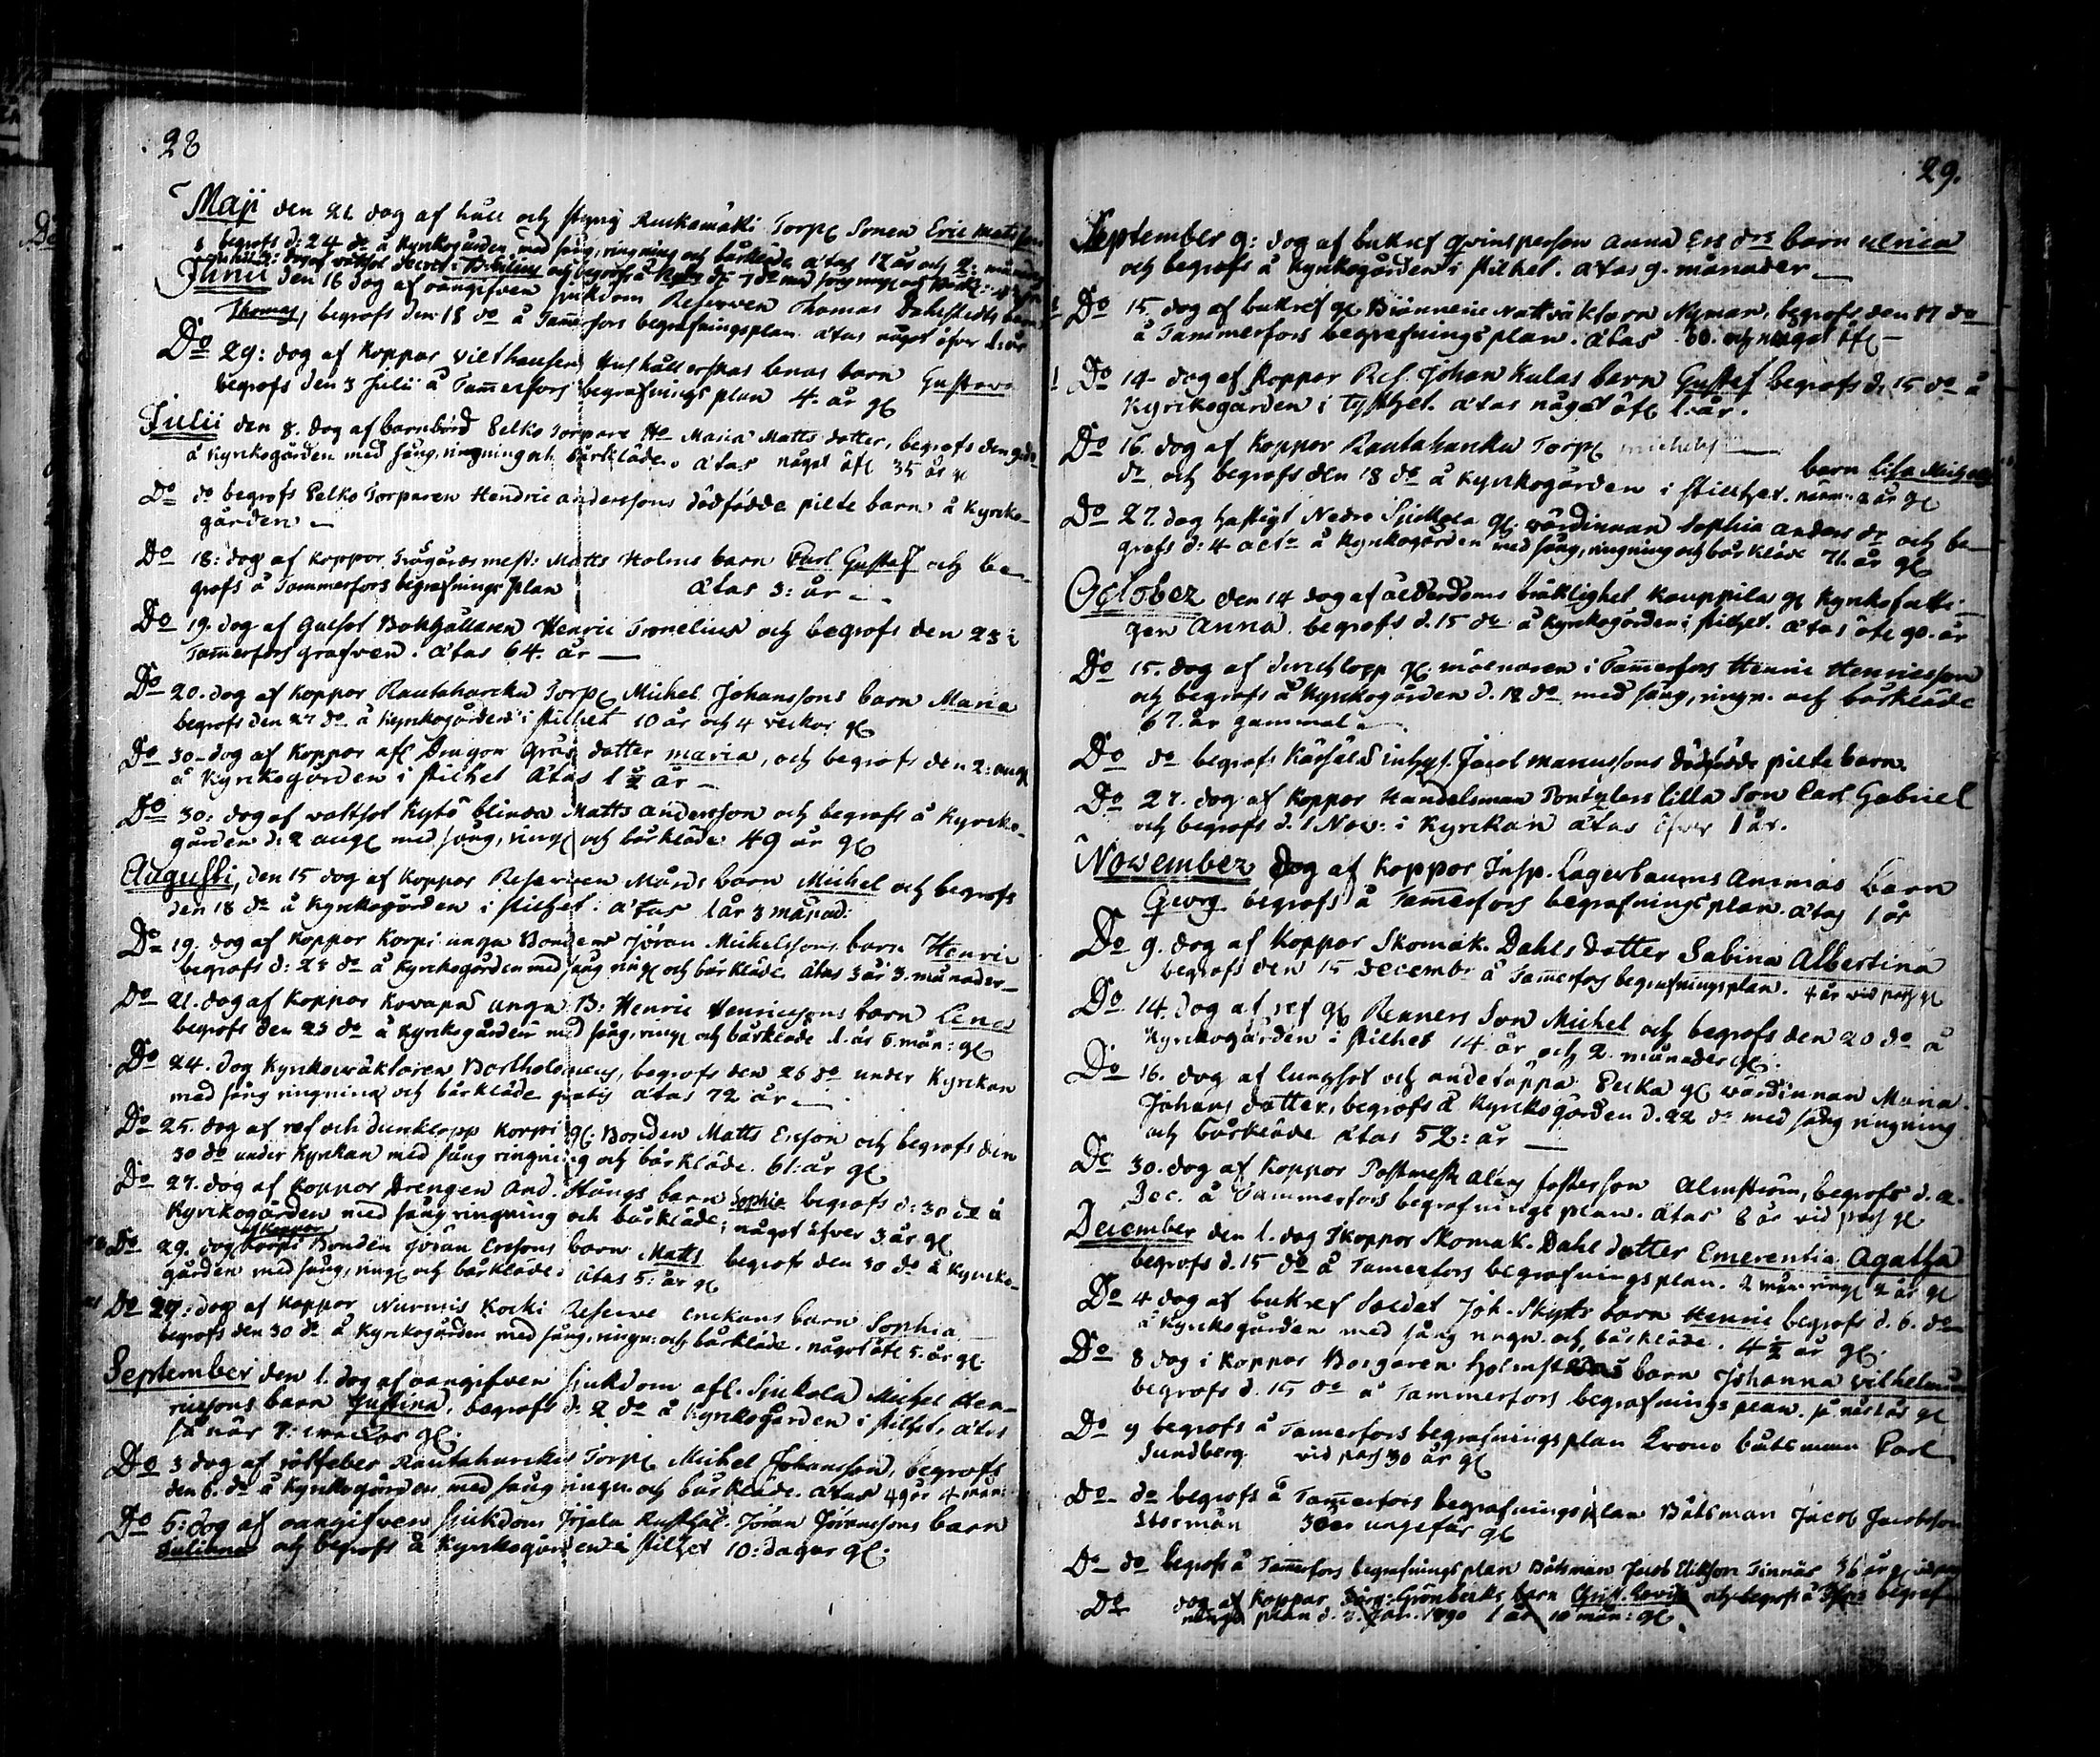 28
Maji den 21 dog af håll och styng Ruskamäki Torpe Sonen Eric Matsson
begrofs d: 24 do å Kyrkogården med sång, ringning och bårkläde åtas 17 år och 2: månader
Junii den 16 dog af oangifven siukdom Reserven Thomas Dahlstedts barn
Thomas, begrofs den 18 do å Tamerfors begrafningsplan åtas något öfver 1: år
Do 29: dog af Koppor Vilthausens Hushållerskas Lenas barn Gustava
begrofs den 3 Julii å Tamerfors begrafnings plan 4. år gl
Julii den 8. dog af barnbörd Pelko Torpare Ho Maria Matts dotter, begrofs den
å Kyrkogården med sång, ringning och bårkläde. åtas något öfr 35 år gl
Do do begrofs Pelko Torparen Hendric anderssons dödfödde pilte barn å Kyrcko-
gården
Do 18: dog af Koppor Trägårds mest: Matts Holms barn Carl Gustaf och be-
grofs å Tammerfors begrafnings plan åtas 3: år
Do 19. dog af gulsot Bokhållaren Henric Tornelius och begrofs den 23 i
Tamerfors grafven. åtas 64. år
Do 20. dog af Koppor Rautaharcku Torpe Michel Johanssons barn Maria
begrofs den 27 do å Kyrkogården i stilhet 10 år och 4 veckor gl
Do 30. dog af Koppor afl Dragon Gräs dotter maria, och begrofs den 2: aug
å Kyrckogården i stilhet åtas 1 ½ år
Do 30: dog af vattsot Kytö blinda Matts andersson och begrofs å Kyrcko-
gården d: 2 aug med sång, ring och bårkläde 49 år gl
Augusti, den 15 dog af Koppor Reserven Mårds barn Michel och begrofs
den 18 do å Kyrkogården i stilhet. åtas 1 år 3 månad:
Do 19. dog af Koppor Korpi unga Bondens Jöran Michelssons barn Henric
begrofs d: 23 do å Kyrckogården med sång ring och bårkläde åtas 3 år 3. månader
Do 21. dog af Koppor Kovapä unga B: Henric Henricssons barn Lena
begrofs den 23 do å Kyrkogården med sång, ring och bårkläde 1. år 6. mån: gl
Do 24. dog Kyrkoväktaren Bartholomeus, begrofs den 26 do under Kyrckan
med sång ringning och bårkläde gratis åtas 72 år
Do 25. dog af ref och durchlopp Korpi gl: Bonden Matts Erson och begrofs den
30 do under Kyrkan med sång ringning och bårkläde. 61: år gl
Do 27. dog af Koppor Drengen And. Stångs barn Sophia begrofs d: 30 do å
Kyrckogården med sång ringning och bårkläde; något öfver 3 år gl
af Koppor
Do 29. dog Korpi Bonden Jöran Erssons barn Matts begrofs den 30 do å Kyrcko-
gården med sång, ring och bårkläde. åtas 5: år gl
Do 29: dog af Koppor Nurmis Koski Reserve barn Sophia
begrofs den 30 do å Kyrckogården med sång, ringn: och bårkläde. något öfr 5. år gl.
September den 1. dog af oangifven siukdom afl. Sjuckola Michel Hen-
ricssons barn Justina, begrofs d: 2 do å Kyrckogården i stilhet, åtas
så när 7: veckor gl.
Do 3 dog af rötfeber Rautaharcku Torpe Michel Johansson, begrofs
den 6. do å Kyrkogården med sång ringn. och bårkläde. åtas 49 år 4 mån:
Do 5: dog af oangifven siukdom Jrjala Rusthål. Jöran Jöranssons barn
Juliana och begrofs å Kyrckogården i stilhet 10: dagar gl.
29.
September 9: dog af bukref qvinsperson Anna Ers drs barn Ulrica
och begrofs å Kyrkogården i stilhet. åtas 9. månader
Do 15. dog af bukref gl Nattväktaren Nyman, begrofs den 17 do
å Tammerfors begrafningsplan. åtas 60. och något öfr
Do 14 dog af Koppor Res. Johan Kulas barn Gustaf begrofs d. 15 do å
Kyrckogården i tysthet. åtas något öfr 1. år.
Do 16. dog af Koppor Rautaharcku Torpe barn Lisa Michels
dr och begrofs den 18 do å Kyrckogården i stillhet. år gl
Do 27. dog hastigt Nedre Sjuckola gl: värdinnan Sophia anders dr och be-
grofs d: 4 octr å Kyrckogården med sång, ringning och bårkläde 71. år gl
October den 14 dog af ålderdoms bräklighet Kauppila gl Kyrkofatti-
gen Anna. begrofs d. 15 do å Kyrckogården i stilhet. åtas öfr 90. år
Do 15. dog af durchlopp gl. mölnaren i Tamerfors Henric Henricsson
och begrofs å Kyrckogården d. 18 do med sång, ringn. och bårkläde
67. år gammal
Do do begrofs Kärsälä inhys. Jacob Marcussons dödfödde pilte barn
Do 27. dog af Koppor Handelsman Pontzlers lilla Son Carl Gabriel
och begrofs d. 1 Nov: i Kyrckan åtas öfver 1 år.
November Dog af Koppor Insp. Lagerbaums Ammas barn
Georg begrofs å Tamerfors begrafningsplan. åtas 1 år
Do 9. dog af Koppor Skomak. Dahls dotter Sabina Albertina
begrofs den 15 Decembr å Tamerfors begrafningsplan. 4 år vid pass gl
Do 14. dog af ref gl Renners Son Michel och begrofs den 20 do å
Kyrkogården i stilhet 14. år och 2. månader gl.
Do 16. dog af lungsot och andetäppa Pecka gl värdinnan Maria
Johans dotter, begrofs å Kyrckogården d. 22 do med sång ringning
och bårkläde åtas 52: år
Do 30. dog af Koppor Postmest Alens fosterson Almström, begrofs d. 2.
Dec. å Tammerfors begrafnings plan. åtas 8 år vid pass gl
December den 1. dog i Koppor Skomak. Dahl dotter Emerentia Agatha
begrofs d. 15 do å Tamerfors begrafningsplan. 2 år gl
Do 4 dog af bukref Soldat Joh. Skytts barn Henric begrofs d. 6. do
å Kyrckogården med sång ringn. och bårkläde. 4 ½ år gl.
Do 8 dog i Koppor Borgaren barn Johanna Vilhelmina
begrofs d. 15 do å Tammerfors begrafnings plan. så när 1 år gl
Do 9 begrofs å Tamerfors begrafningsplan Krono båtsman Carl
Sundberg vid pass 30 år gl
Do do begrofs å Tamerfors begrafningsplan Båtsman Jacob Jacobsson
Storman 30 år ungefär gl
Do do begrofs å Tamerfors begrafningsplan Båtsman Jacob Tinnär 36 år gl vid pass
Do dog af Koppor Grönbecks barn Christ. Lovisa och begrofs å begraf
nings plan d. 3. Jan. 1790 1 år 10 mån: gl.